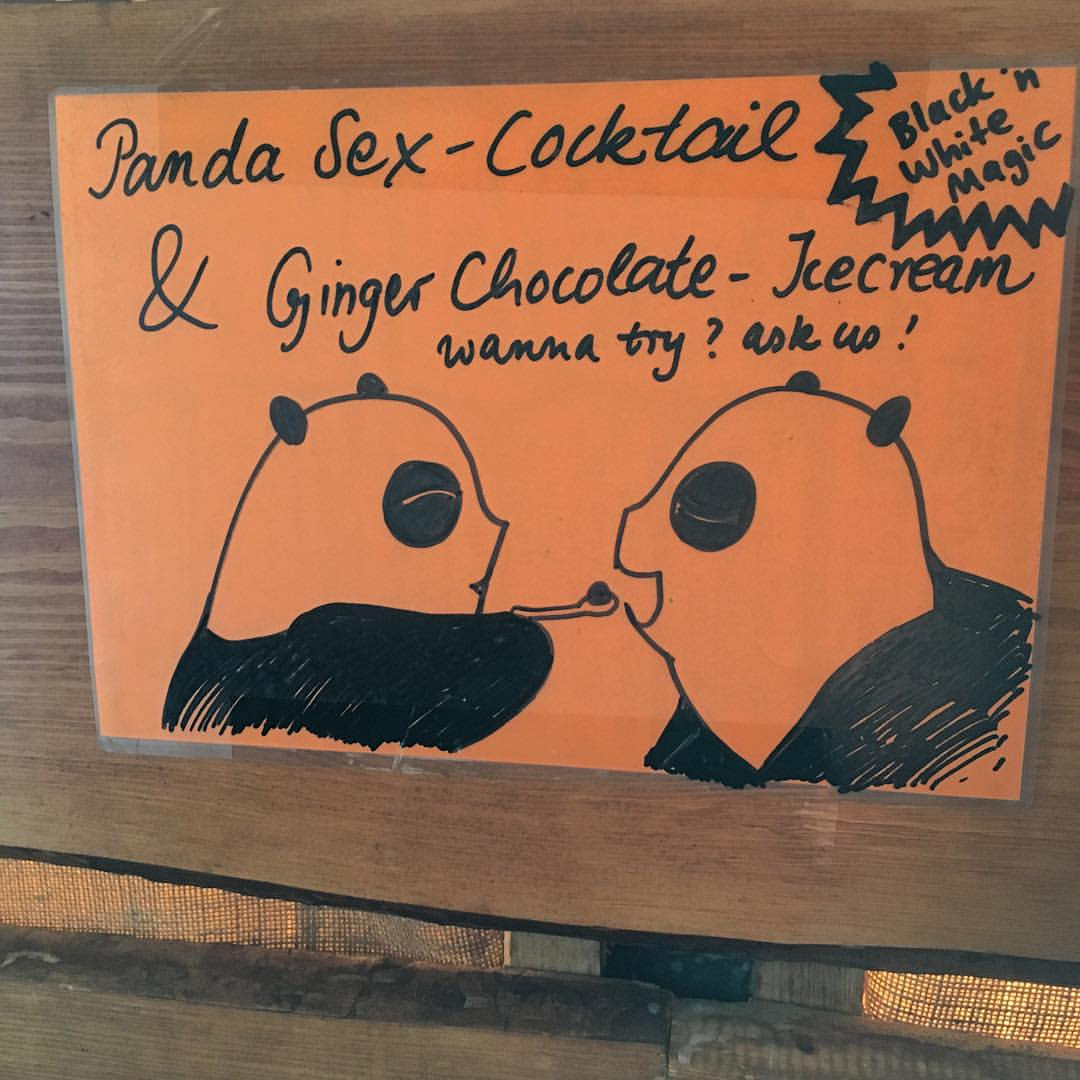 Panda Sex-Cocktail
Black 'n
White
Magic
& Ginger Chocolate-Icecream
wanna try? ask us!